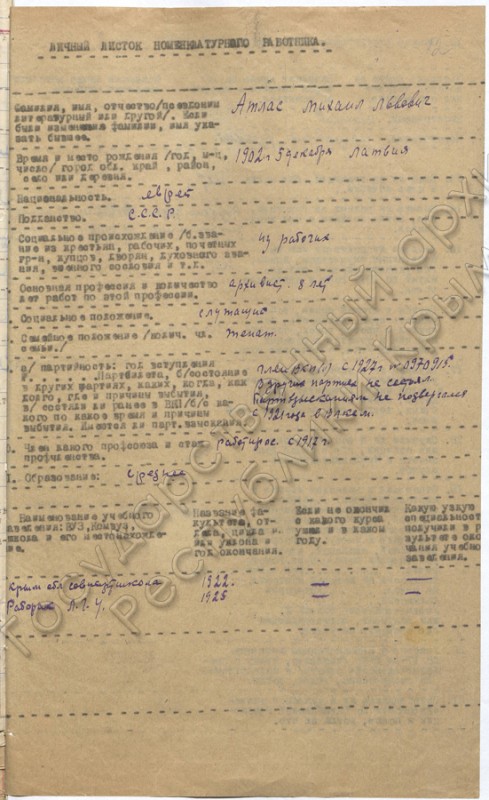 ЛИЧНЫЙ ЛИСТОК НОМЕНКЛАТУРНОГО РАБОТНИКА.
Фамилия, имя, отчество/псевдоним Атлас Михаил Львович
литературный или другой/. Если
были изменения фамилии, имя ука-
зать бывшее.
Время и место рождения /год, м-ц, 1902 г 5 декабря Латвия
число/ город обл. край, район,
село или деревня.
Национальность. еврей
Подданство. С.С.С.Р.
Социальное происхождение /б.зва- из рабочих
ние из крестьян, рабочих, почетных
гр-н, купцов, дворян, духовного зва-
ния, военного сословия и т.п.
Основная профессия и количество архивист. 8 лет
лет работ по этой профессии.
Социальное положение. служащий
Семейное положение /колич. чл. женат.
семьи./
а/ партийность: год вступления член ВКП(б) с 1927 г. № 0970915.
Партбилета, б/состояние В других партиях не состоял
в других партиях, каких, когда, как Партвзысканиям не подвергался
долго, где и причины выбытия, с 1921 года в
в/ состоял ли ранее в ВКП/б/с ка-
кого по какое время и причины
выбытия. Имеются ли парт.взыскания.
0. Член какого профсоюза и стаж работпрос. с 1912 г
профчленства.
1. Образование: Среднее
Наименование учебного Название фа- Если не окончил Какую узкую
заведения: ВУЗ, Комвуз, культета, от- с какого курса специальность
школа и его местонахожде- дела, цикла и ушел и в каком получил
ние. или уклона и году. культете окон-
год окончания. чания учебно
заведения.
Крым обл совпартшкола 1922. — —
Рабфак Л.Г.У. 1925 — —
Государственный архив
Республики Крым